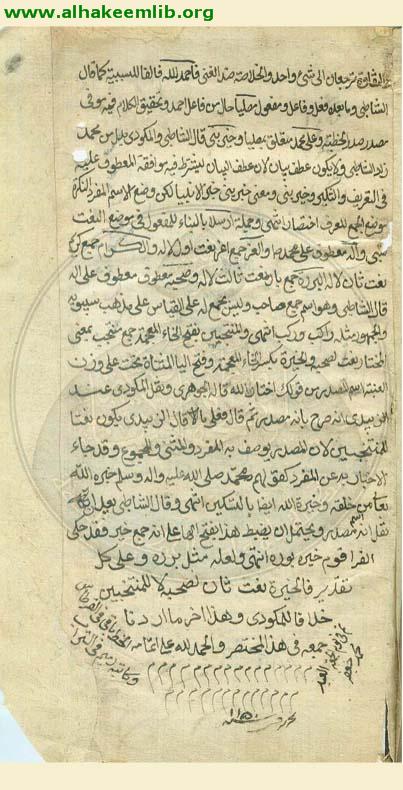 www.alhakeemlib.org
النقاوة يرجعان الى شئ واحد والخلاصة ضد الغنى فاحمد الله فالفا للسببية كما قال
الشاطبي وما بعده فعل وفاعل ومفعول مصليا حال من فاعل احمد وتحقيق الكلام فيه يوفى
مصدر صدر الخطبة وعلى محمد متعلق بمصليا وخير نبي قال الشاطبي والمكودي بدل من محمد
زاد الشاطبي ولا يكون عطف بيان لان عطف البيان يشترط فيه موافقة المعطوف عليه
في التعريف والتنكير وخير نبي ومعنى خير نبي خير الانبيا لكن وضع الاسم المفرد النكرة
موضع الجمع المعرف اختصارا انتهى وجملة ارسلا بالبناء للمفعول في موضع النعت
لنبي وآله معطوف على محمد والغر جمع اغر نعت اول لاله والكرام جمع كريم
نعت ثان لاله البررة جمع بار نعت ثالث لاله وصحبه معطوف على اله
قال الشاطبي وهو اسم جمع صاحب وليس بجمع له على القياس على مذهب سيبويه
والجمهور مثل راكب وركب انتهى والمنتخبين بفتح الخاء المعجمة جمع منتخب بمعنى
المختار نعت لصحبه والخيرة بكسر الخاء المعجمة وفتح اليا المثناة تحت على وزن
العنبة اسم المصدر من قولك اختار الله قاله الجوهري ونقل المكودي عند
الزبيدي انه صرح بانه مصدر ثم قال فعلى ما قال الزبيدي يكون نعتا
للمنتخبين لان المصدر يوصف به المفرد والمثنى والمجموع وقد جاء
الاخبار به عن المفرد كقولهم محمد صلى الله عليه واله وسلم خيرة الله
من خلقه وخيرة الله ايضا بالتسكين انتهى وقال الشاطبي بعد ان
نقل انه اسم مصدر ويحتمل ان يضبط هذا بفتح الها على انه جمع خير فقد حكى
الفرا قوم خيرة بررة انتهى ولعله مثل بررة وعلى كل
تقدير فالخيرة نعت ثان لصحبه لا للمنتخبين
خلافا للمكودي وهذا اخر ما اردنا
جمعه في هذا المختصر والحمد لله على اتمامه
الخط باقي في القرطاس
وكاتبه رميم في التراب